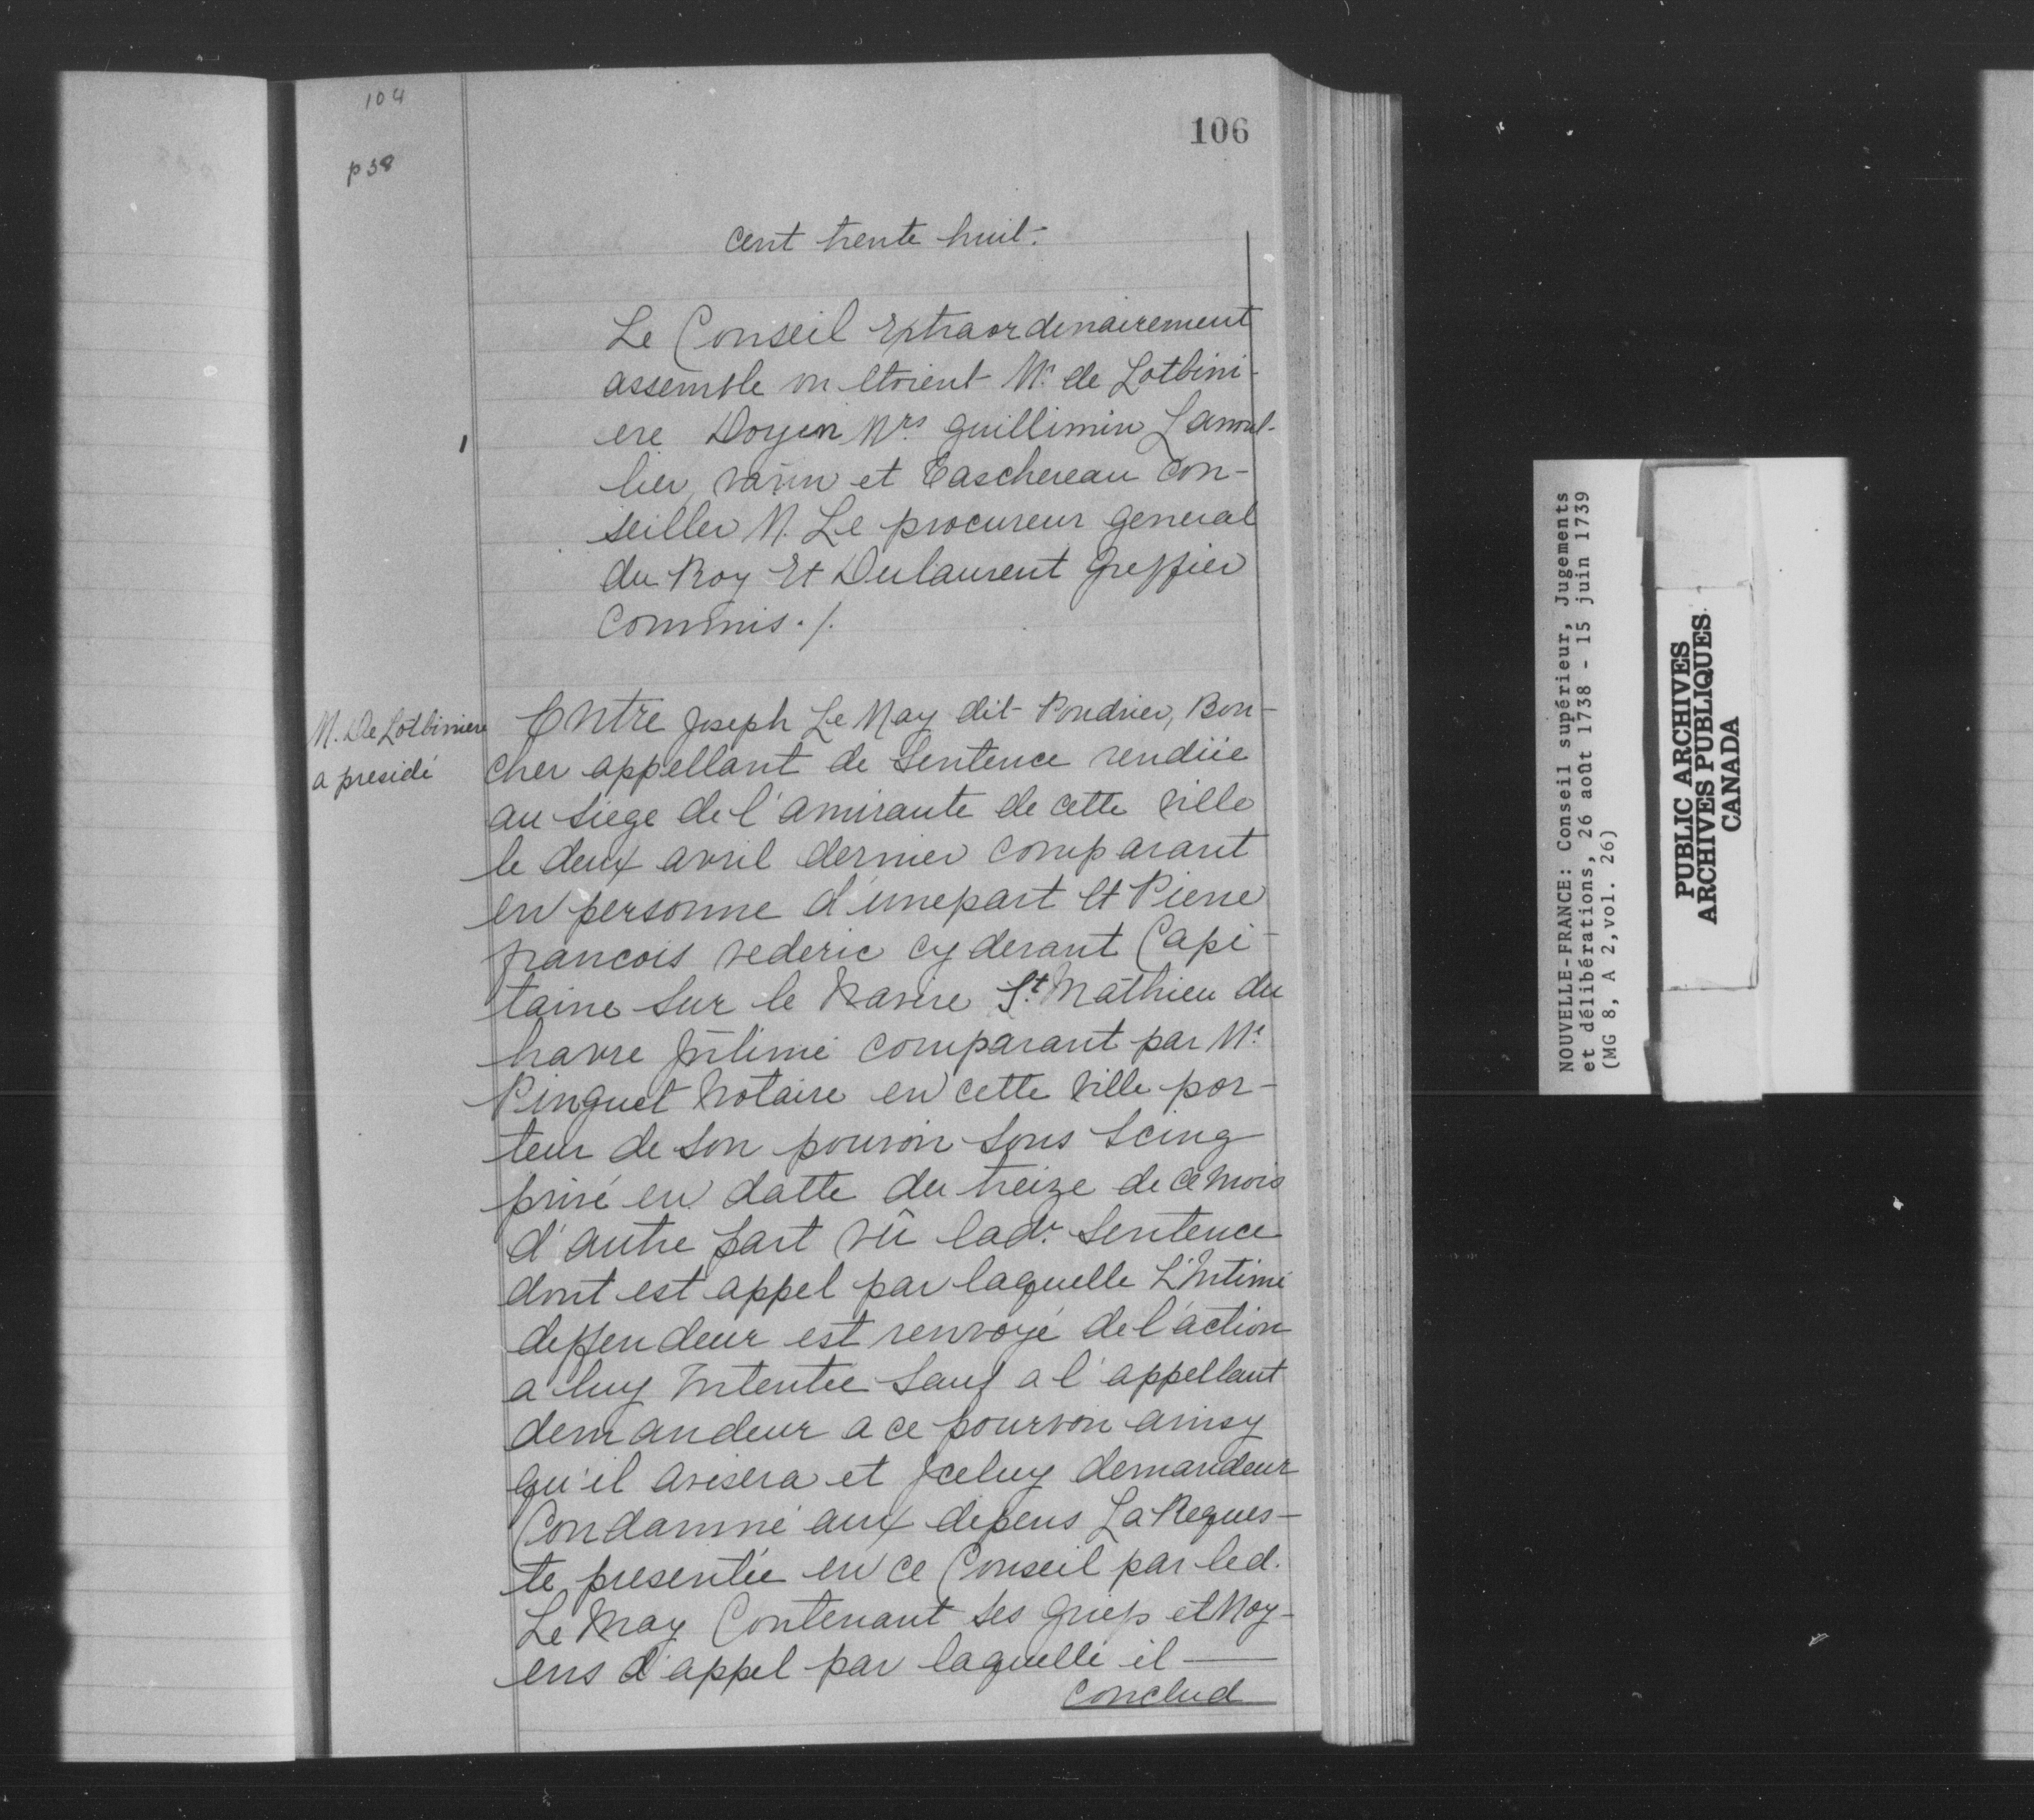 104
p 38
106
cent trente huit.
Le Conseil Extraordinairement
assemblé ou etoient Mr. de Lotbini-
ere Doyen Mrs guillimin Lanoul-
lier, varin et Taschereau Con-
seiller M. Le procureur general
du Roy Et Dulaurent Greffier
Commis ./.
M. De Lotbiniere
a presidé
Entre Joseph Le May dit Poudrier, Bou-
cher appellant de Sentence rendüe
au siege de l'amirauté de cette ville
le deux avril dernier comparant
en personne d'unepart Et Pierre
francois vederic cy devant Capi-
taine sur le Navire St. Mathieu du
havre Jntimé comparant par Me.
Pinguet Notaire en cette ville por-
teur de son pouvoir sous Seing
privé en datte du treize de ce mois
d'autre part vû lade. Sentence
dont est appel par laquelle L'Intimé
deffendeur est renvoyé de l'action
a luy Intentée Sauf a l'appellant
demandeur a ce pourvoir ainsy
qu'il avisera et Jceluy demandeur
Condamné aux depens La Reques-
te presentée en ce Conseil par led.
Le May Contenant ses griefs et Moy-
ens d'appel par laquelle il
conclud
NOUVELLE-FRANCE: Conseil supérieur, Jugements
et délibérations, 26 août 1738 - 15 juin 1739
(MG 8, A 2, vol. 26)
PUBLIC ARCHIVES
ARCHIVES PUBLIQUES
CANADA